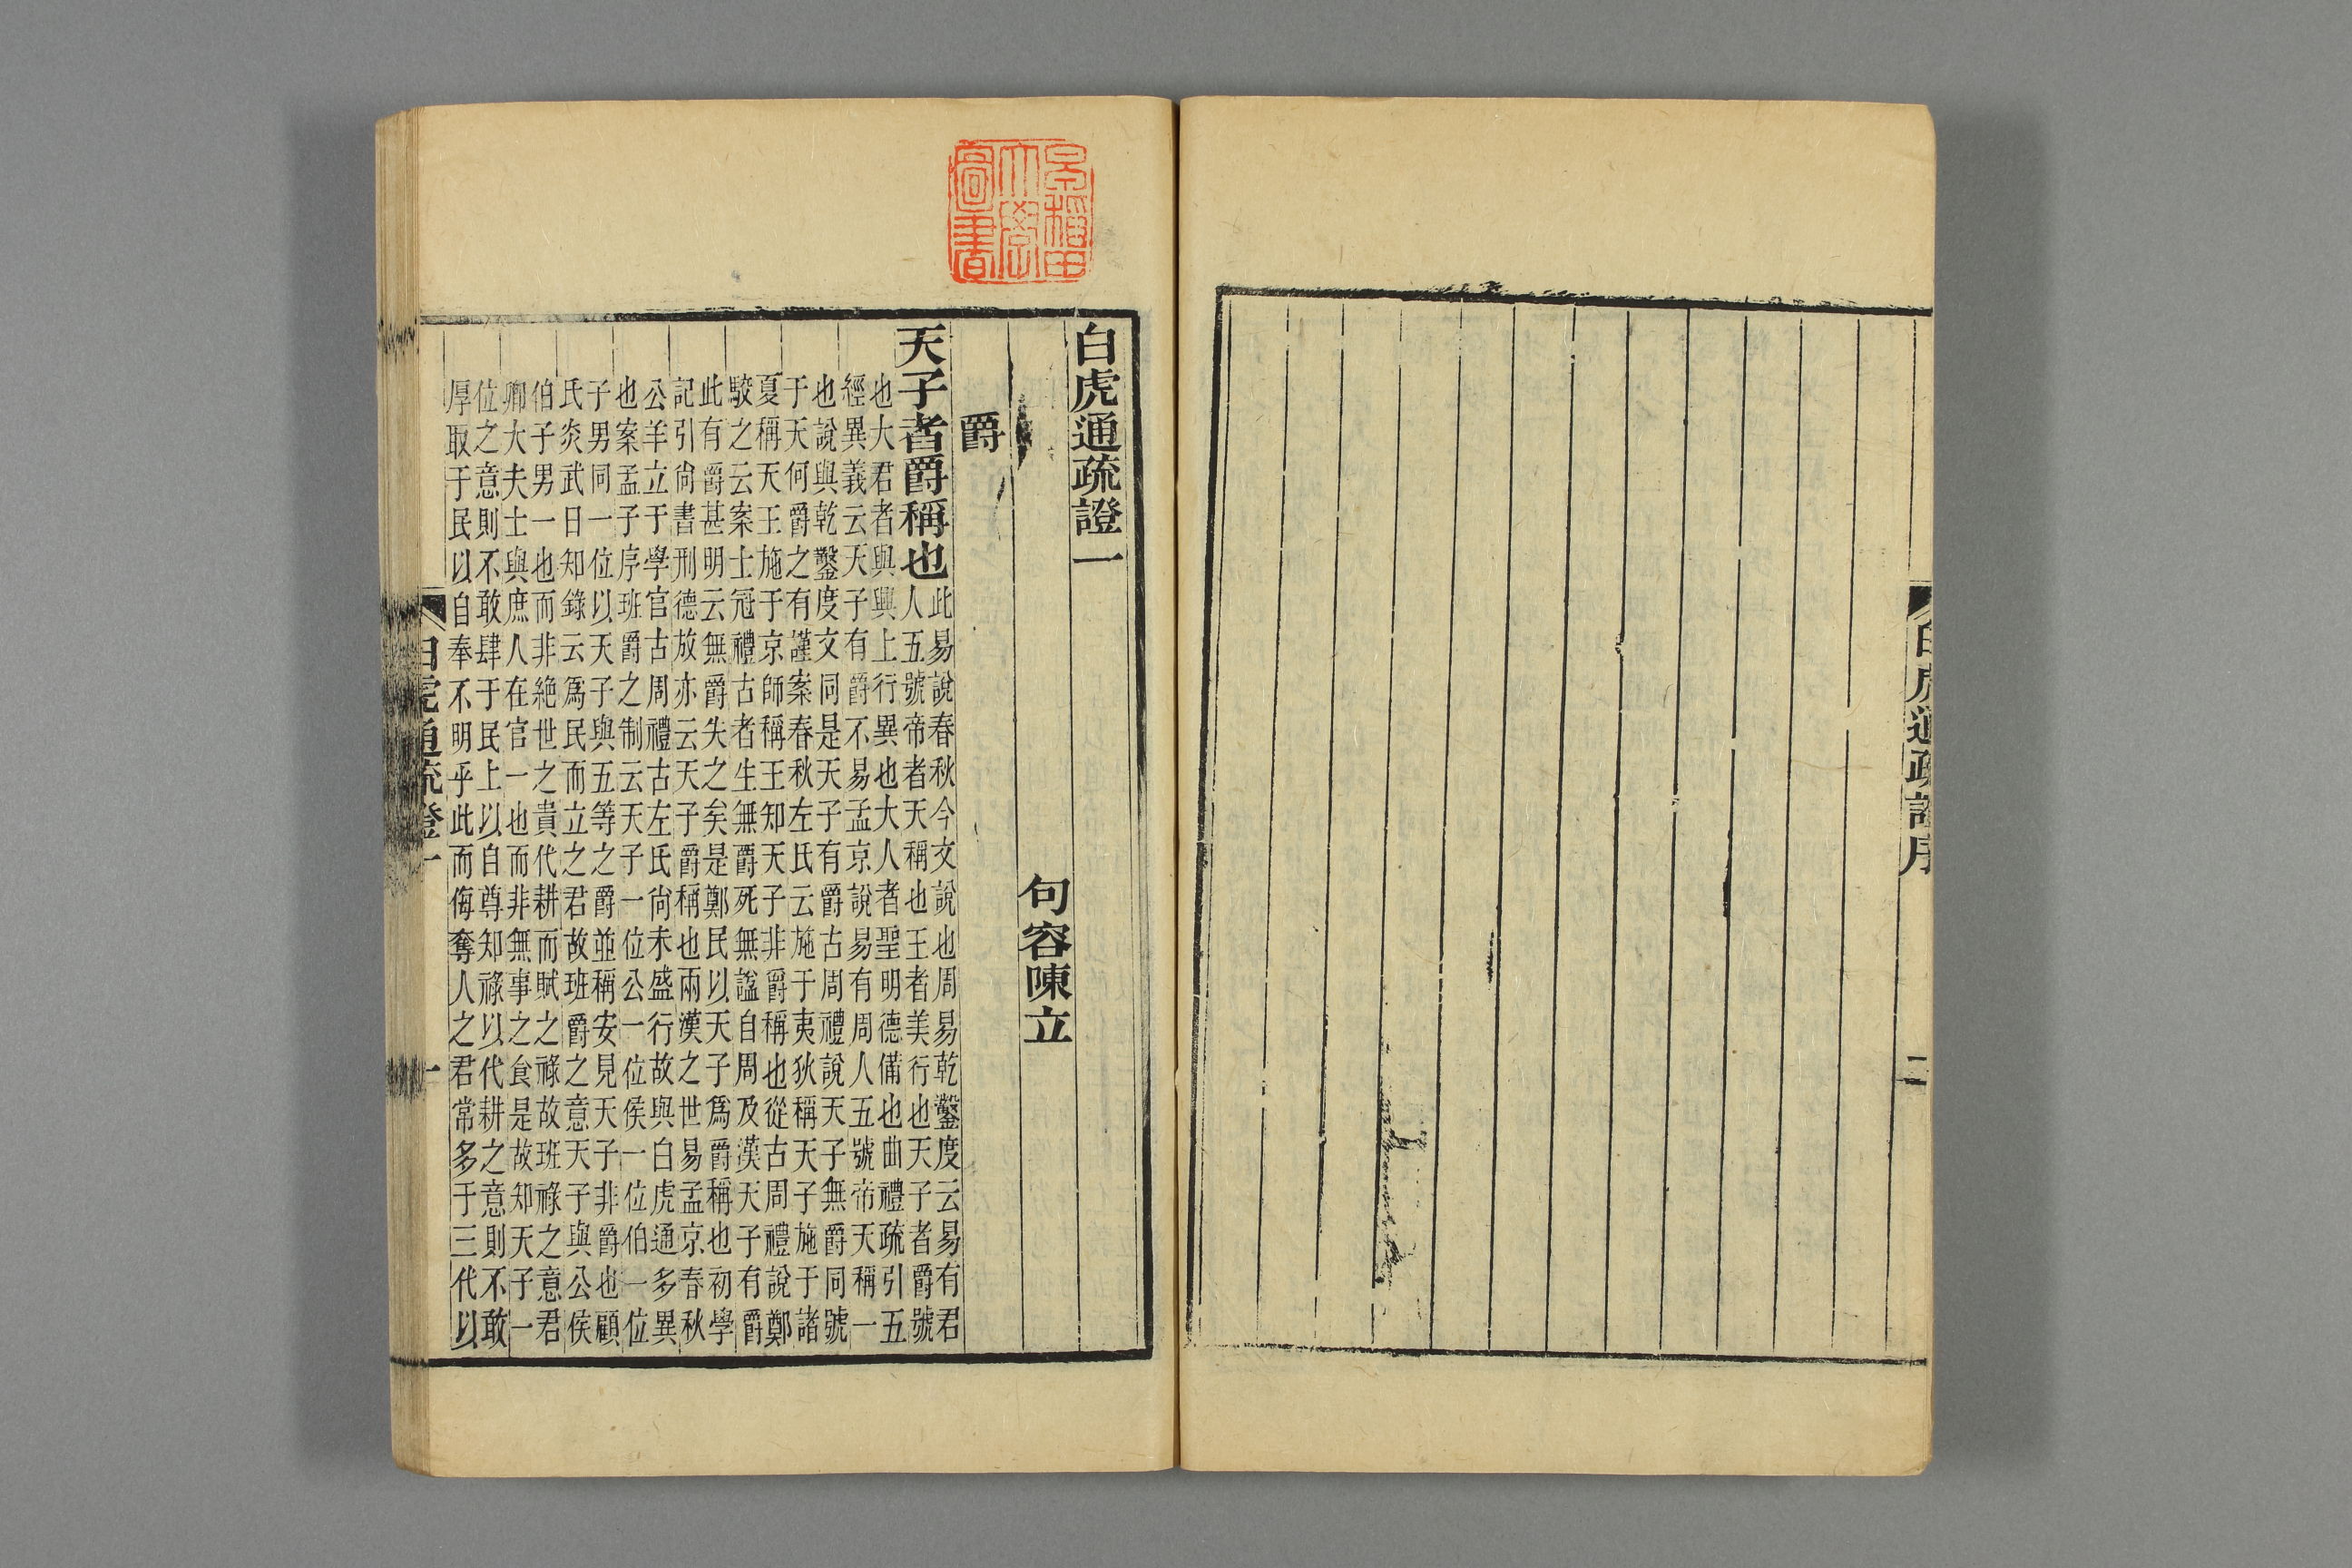 白虎通疏證序
二
早稻田
大學
圖書
白虎通疏證一
句容陳立
爵
天子者爵稱也此易說春秋今文說也周易乾鑿度云易有君
人五號帝者天稱也王者美行也天子者爵號
也大君者與興上行異也大人者聖明德備也曲禮疏引五
經異義云天子有爵不易孟京說易有周人五號帝天稱一
也說與乾鑿度文同是天子有爵古周禮說天子無爵同號
于天何爵之有謹案春秋左氏云施于夷狄稱天子施于諸
夏稱天王施于京師稱王知天子非爵稱也從古周禮說鄭
駮之云案士冠禮古者生無爵死無諡自周及漢天子有爵
此有爵甚明云無爵失之矣是鄭民以天子爲爵稱也初學
記引尙書刑德放亦云天子爵稱也兩漢之世易孟京春秋
公羊立于學官古周禮古左氏尙未盛行故與白虎通多異
也案孟子序班爵之制云天子一位公一位侯一位伯一位
子男同一位以天子與五等之爵並稱安見天子非爵也顧
氏炎武日知錄云爲民而立之君故班爵之意天子與公侯
伯子男一也而非絶世之貴代耕而賦之祿故班祿之意君
卿大夫士與庶人在官一也而非無事之食是故知天子一
位之意則不敢肆于民上以自尊知祿以代耕之意則不敢
厚取于民以自奉不明乎此而侮奪人之君常多于三代以
白虎通疏證一
一